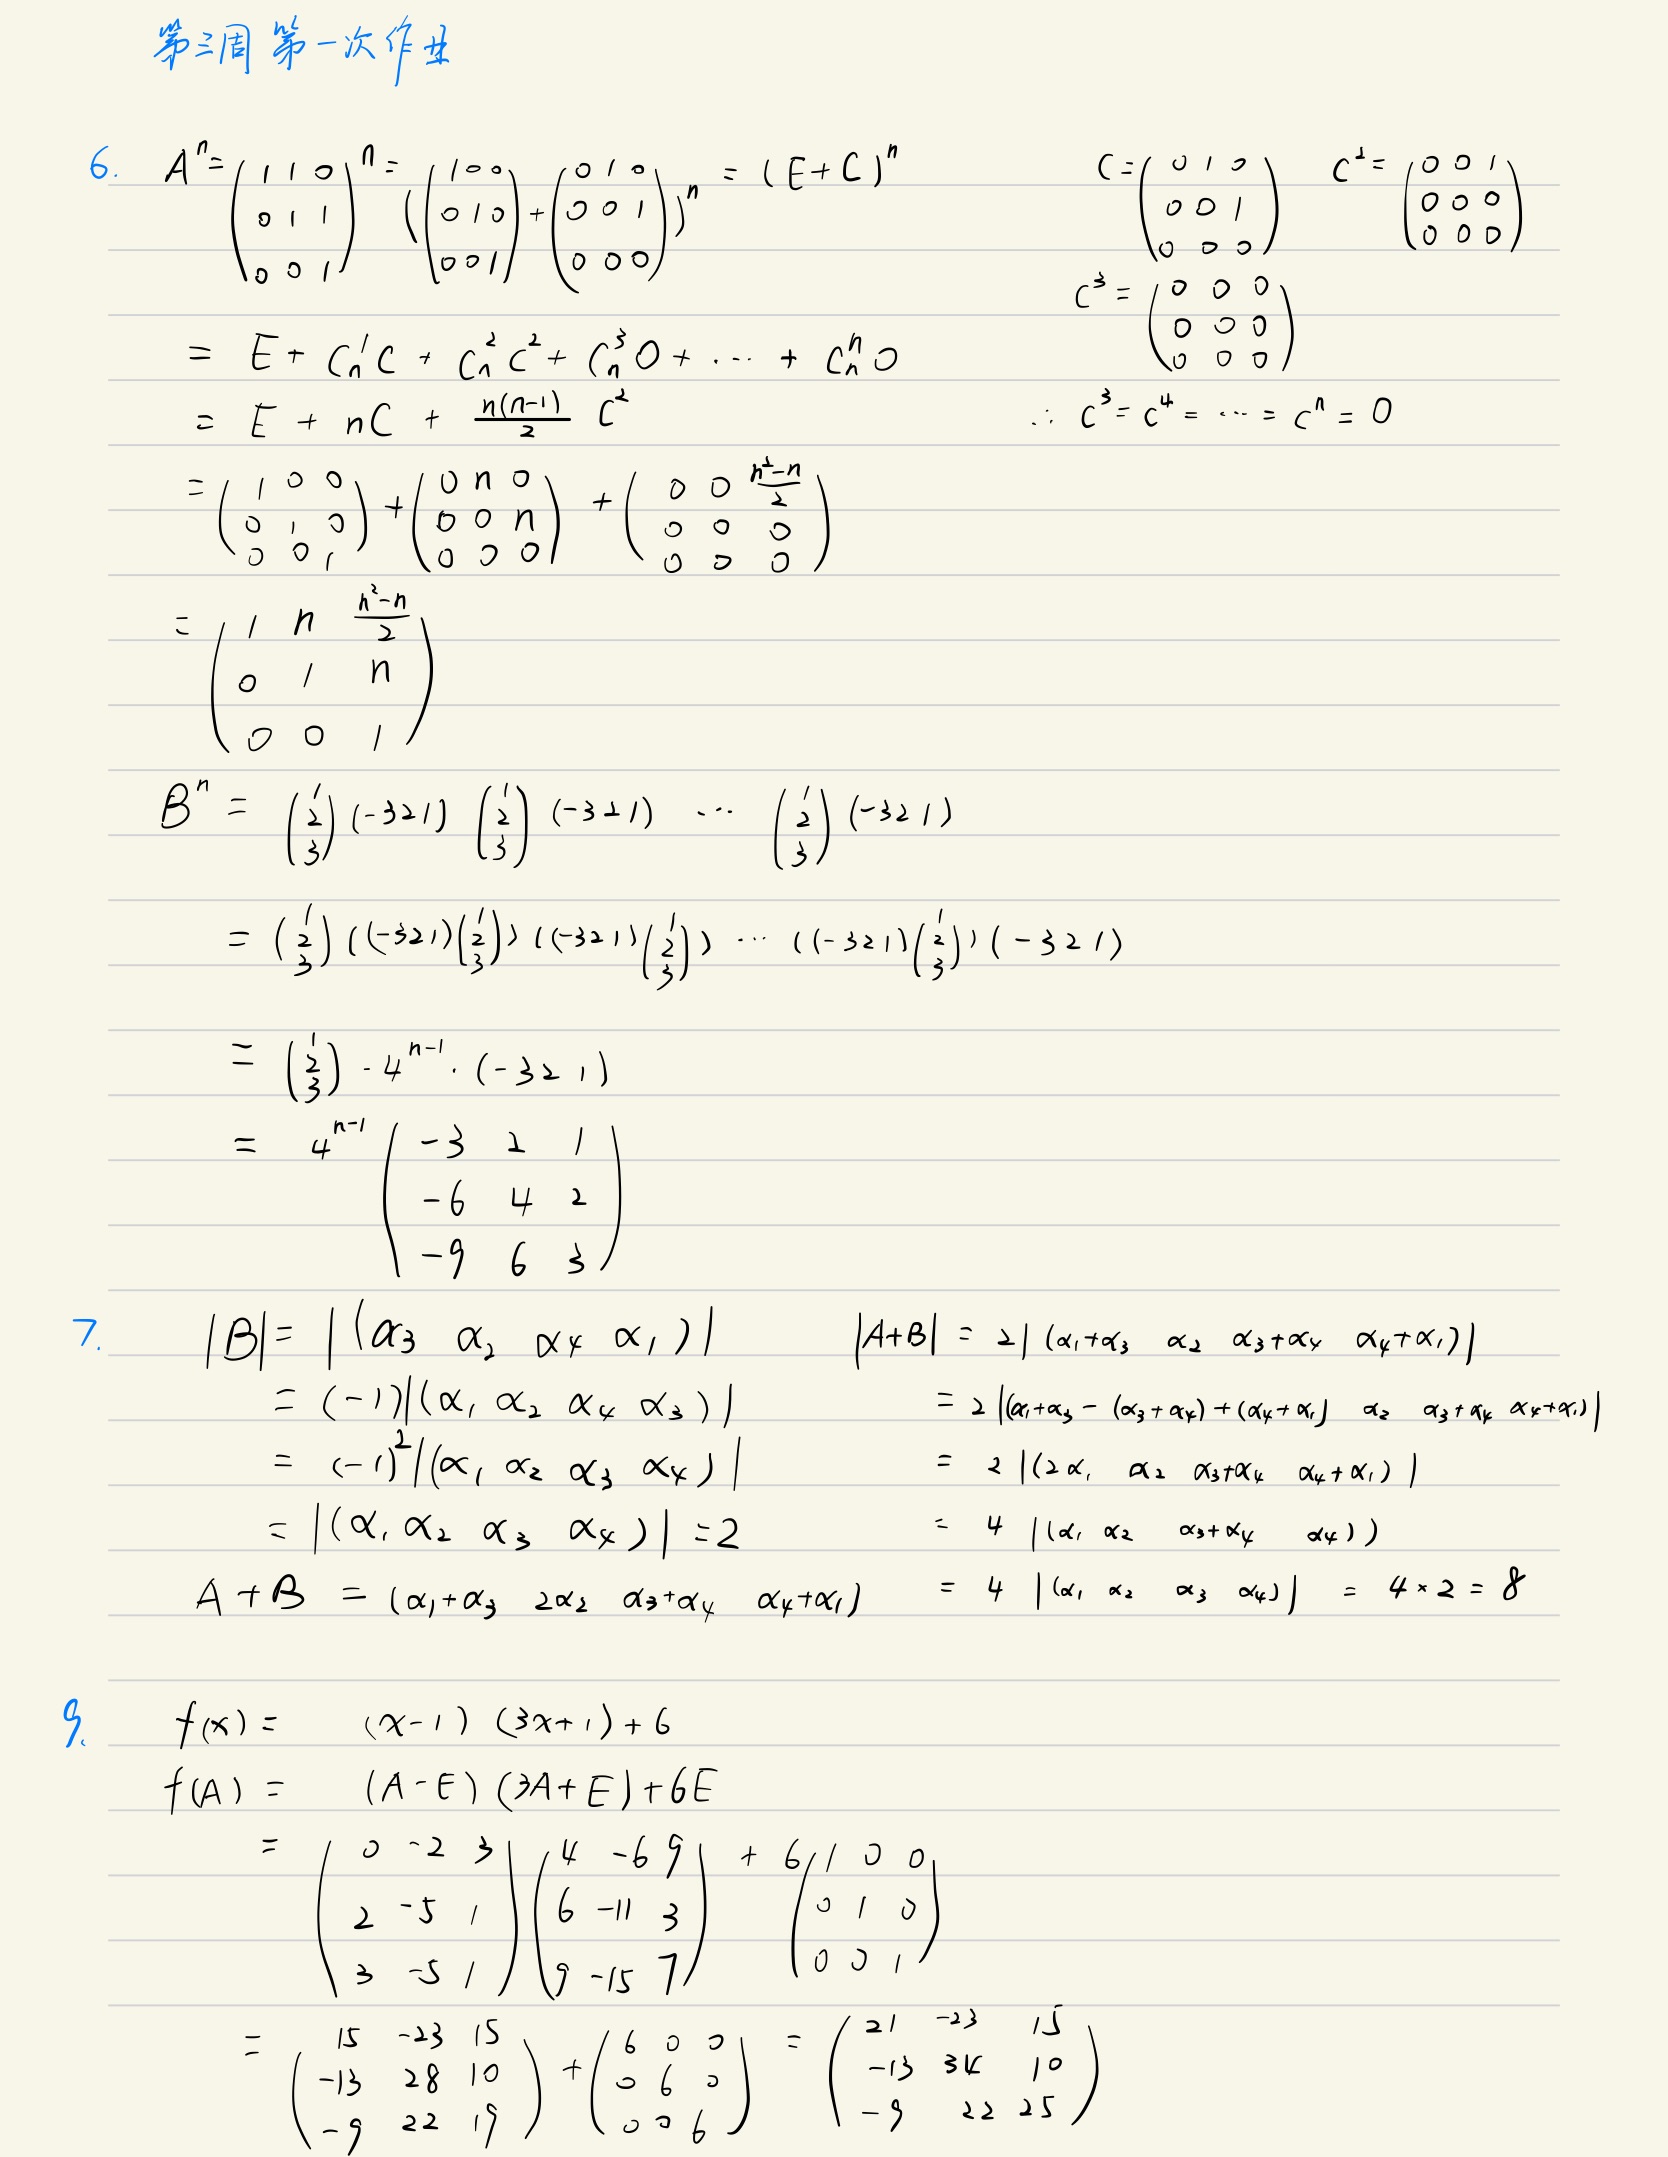 第三周 第一次作业
6. Aⁿ = (1 1 0; 0 1 1; 0 0 1)ⁿ = ((1 0 0; 0 1 0; 0 0 1) + (0 1 0; 0 0 1; 0 0 0))ⁿ = (E+C)ⁿ
C = (0 1 0; 0 0 1; 0 0 0) C² = (0 0 1; 0 0 0; 0 0 0)
C³ = (0 0 0; 0 0 0; 0 0 0)
= E + Cₙ¹C + Cₙ²C² + Cₙ³O + ⋯ + CₙⁿO
= E + nC + n(n-1)/2 C²
∴ C³ = C⁴ = ⋯ = Cⁿ = O
= (1 0 0; 0 1 0; 0 0 1) + (0 n 0; 0 0 n; 0 0 0) + (0 0 (n²-n)/2; 0 0 0; 0 0 0)
= (1 n (n²-n)/2; 0 1 n; 0 0 1)
Bⁿ = (1; 2; 3) (-3 2 1) (1; 2; 3) (-3 2 1) ⋯ (1; 2; 3) (-3 2 1)
= (1; 2; 3) ((-3 2 1)(1; 2; 3)) ((-3 2 1)(1; 2; 3)) ⋯ ((-3 2 1)(1; 2; 3)) (-3 2 1)
= (1; 2; 3) · 4ⁿ⁻¹ · (-3 2 1)
= 4ⁿ⁻¹ (-3 2 1; -6 4 2; -9 6 3)
7. |B| = |(α₃ α₂ α₄ α₁)|
= (-1)|(α₁ α₂ α₄ α₃)|
= (-1)²|(α₁ α₂ α₃ α₄)|
= |(α₁ α₂ α₃ α₄)| = 2
A+B = (α₁+α₃ 2α₂ α₃+α₄ α₄+α₁)
|A+B| = 2|(α₁+α₃ α₂ α₃+α₄ α₄+α₁)|
= 2|(α₁+α₃-(α₃+α₄)+(α₄+α₁) α₂ α₃+α₄ α₄+α₁)|
= 2|(2α₁ α₂ α₃+α₄ α₄+α₁)|
= 4|(α₁ α₂ α₃+α₄ α₄))
= 4|(α₁ α₂ α₃ α₄)| = 4×2 = 8
9. f(x) = (x-1)(3x+1)+6
f(A) = (A-E)(3A+E)+6E
= (0 -2 3; 2 -5 1; 3 -5 1) (4 -6 9; 6 -11 3; 9 -15 7) + 6(1 0 0; 0 1 0; 0 0 1)
= (15 -23 15; -13 28 10; -9 22 19) + (6 0 0; 0 6 0; 0 0 6) = (21 -23 15; -13 34 10; -9 22 25)